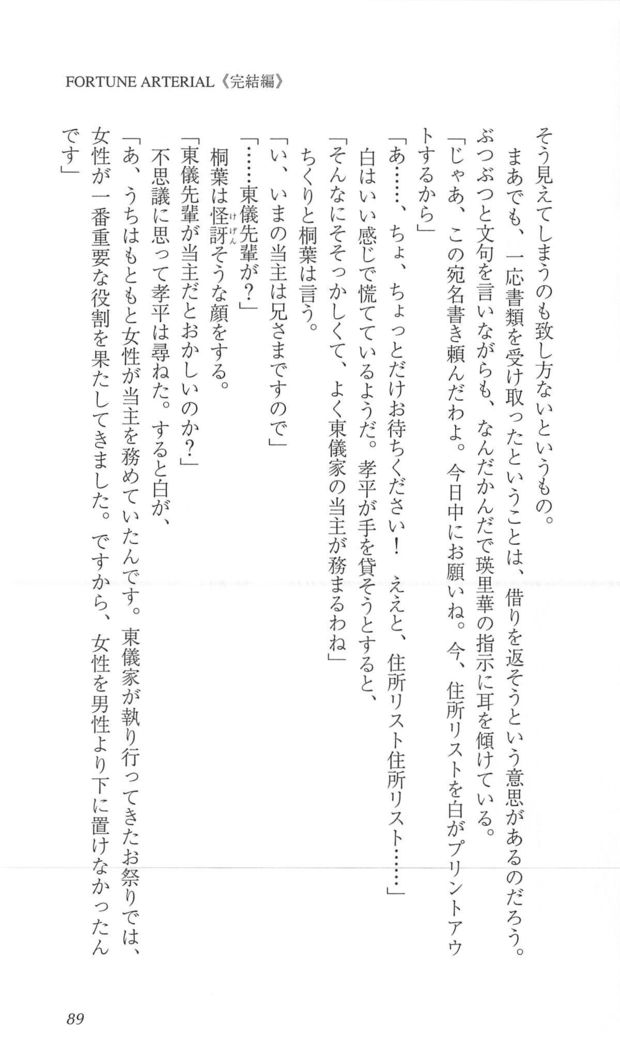 FORTUNE ARTERIAL《完結編》
そう見えてしまうのも致し方ないというもの。
　まあでも、一応書類を受け取ったということは、借りを返そうという意思があるのだろう。
ぶつぶつと文句を言いながらも、なんだかんだで瑛里華の指示に耳を傾けている。
「じゃあ、この宛名書き頼んだわよ。今日中にお願いね。今、住所リストを白がプリントアウ
トするから」
「あ……、ちょ、ちょっとだけお待ちください！　ええと、住所リスト住所リスト……」
　白はいい感じで慌てているようだ。孝平が手を貸そうとすると、
「そんなにそそっかしくて、よく東儀家の当主が務まるわね」
　ちくりと桐葉は言う。
「い、いまの当主は兄さまですので」
「……東儀先輩が？」
　桐葉は怪訝そうな顔をする。
けげん
「東儀先輩が当主だとおかしいのか？」
　不思議に思って孝平は尋ねた。すると白が、
「あ、うちはもともと女性が当主を務めていたんです。東儀家が執り行ってきたお祭りでは、
女性が一番重要な役割を果たしてきました。ですから、女性を男性より下に置けなかったん
です」
89